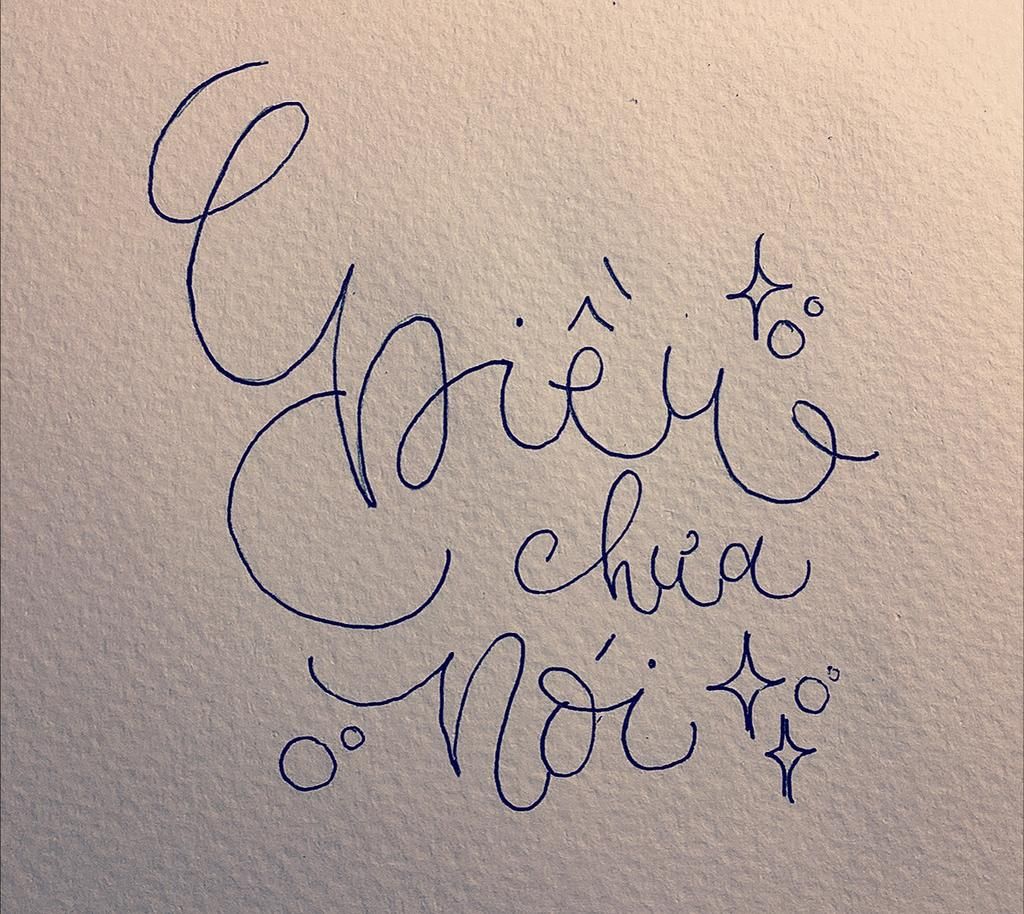 Điều
chưa
nói